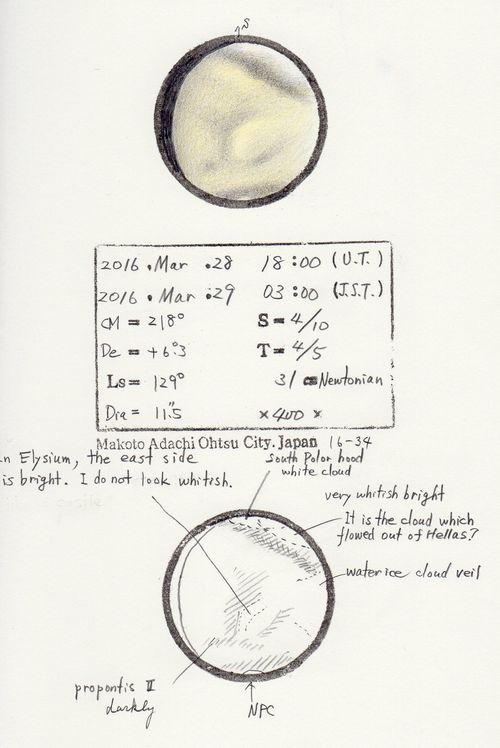 S
2016 . Mar . 28 18:00 (U.T.)
2016 . Mar . 29 03:00 (J.S.T.)
CM = 218°
S = 4/10
De = +6°.3
T = 4/5
Ls = 129°
31 cm Newtonian
Dia = 11".5
×400 ×
Makoto Adachi Ohtsu City. Japan 16-34
n Elysium, the east side
is bright. I do not look whitish.
South Polor hood
white cloud
very whitish bright
It is the cloud which
flowed out of Hellas?
water ice cloud veil
propontis II
darkly
NPC